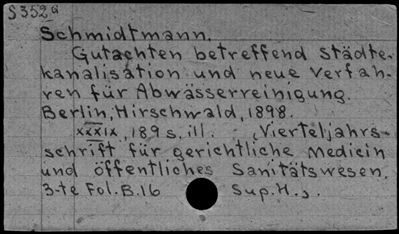 S 352 a
Schmidtmann.
Gutachten betreffend Städte-
kanalisation und neue Verfah-
ren für Abwässerreinigung.
Berlin, Hirschwald, 1898.
XXXIX, 189 s. ill. (Vierteljahrs-
schrift für gerichtliche Medicin
und öffentliches Sanitätswesen.
3-te Fol. B. 16 Sup. H.).